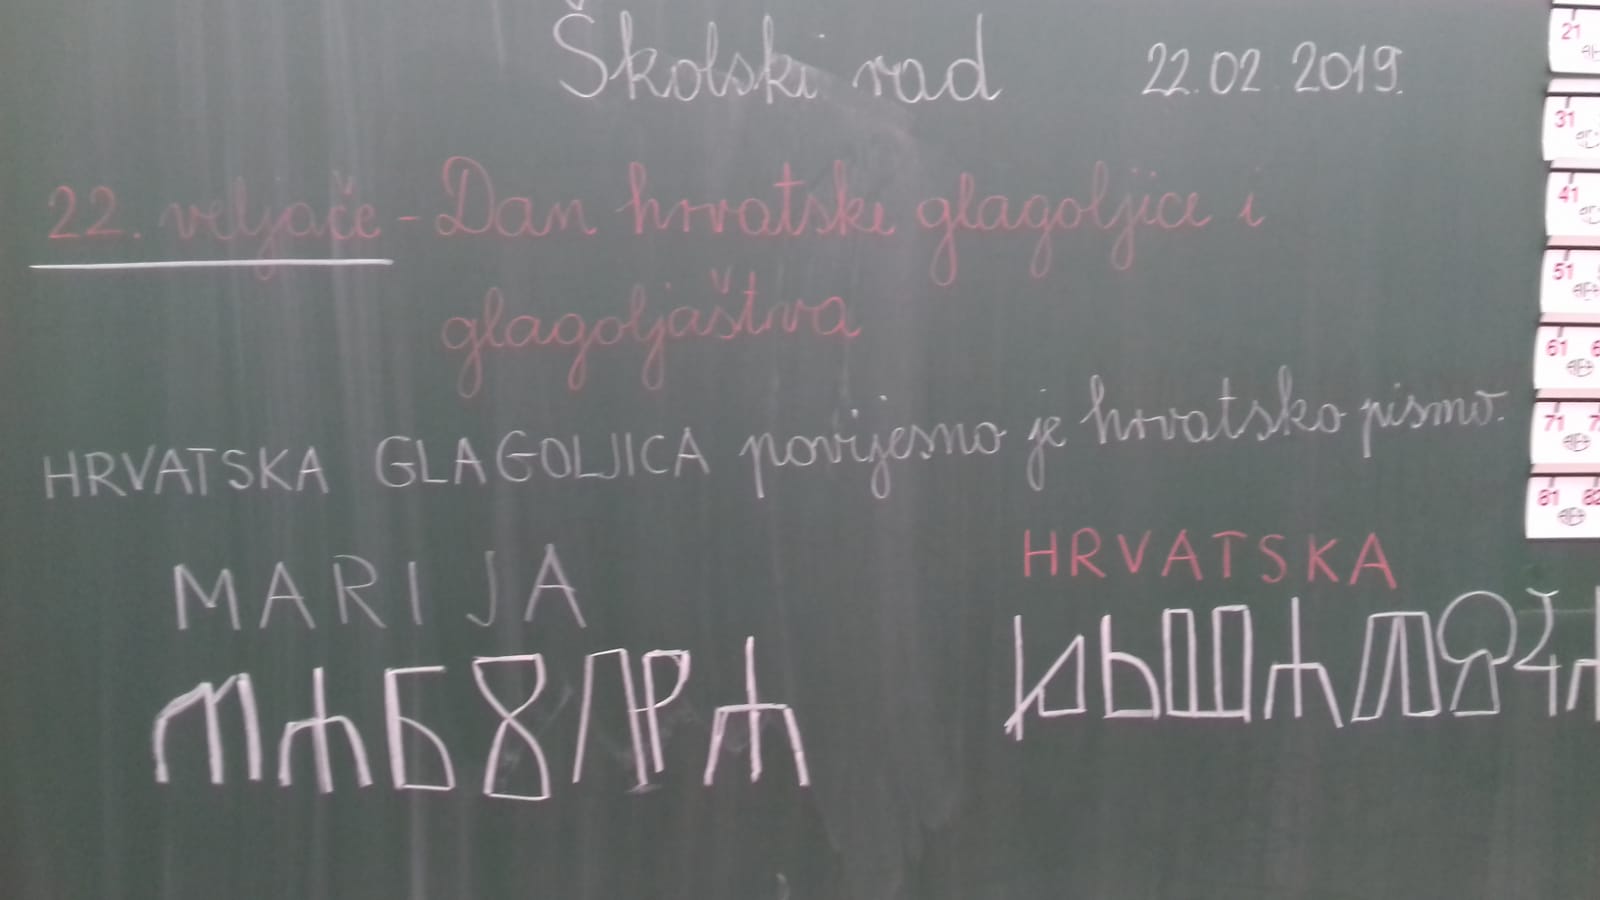 Školski rad 22.02.2019.
22. veljače - Dan hrvatske glagoljice i
glagoljaštva
HRVATSKA GLAGOLJICA povijesno je hrvatsko pismo.
MARIJA HRVATSKA
ⰿⰰⱃⰻⰼⰰ ⱈⱃⰲⰰⱅⱄⰽⰰ
21
31
41
51
61
71
81 82